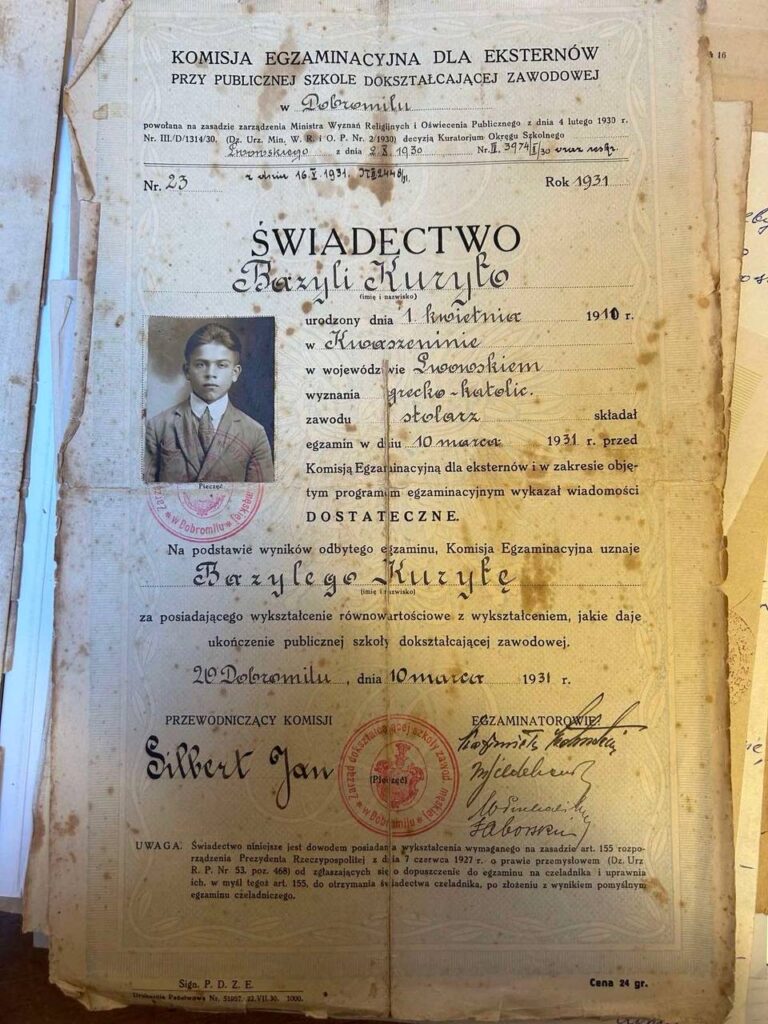 KOMISJA EGZAMINACYJNA DLA EKSTERNÓW
PRZY PUBLICZNEJ SZKOLE DOKSZTAŁCAJĄCEJ ZAWODOWEJ
w Dobromilu
powołana na zasadzie zarządzenia Ministra Wyznań Religijnych i Oświecenia Publicznego z dnia 4 lutego 1930 r.
Nr. III/D/1314/30. (Dz. Urz. Min. W. R. i O. P. Nr. 2/1930) decyzją Kuratorium Okręgu Szkolnego
Lwowskiego z dnia 2.X.1930 Nr. II. 3974/II/30 oraz
z dnia 16.V.1931.
Nr. 23 Rok 1931
ŚWIADECTWO
Bazyli Kuryło
(imię i nazwisko)
urodzony dnia 1 kwietnia 1910 r.
w Kwaszeninie
w województwie Lwowskiem
wyznania grecko-katolic.
zawodu stolarz składał
egzamin w dniu 10 marca 1931 r. przed
Komisją Egzaminacyjną dla eksternów i w zakresie obję-
tym programem egzaminacyjnym wykazał wiadomości
DOSTATECZNE.
Pieczęć
w Dobromilu
Na podstawie wyników odbytego egzaminu, Komisja Egzaminacyjna uznaje
Bazylego Kuryłę
(imię i nazwisko)
za posiadającego wykształcenie równowartościowe z wykształceniem, jakie daje
ukończenie publicznej szkoły dokształcającej zawodowej.
W Dobromilu, dnia 10 marca 1931 r.
PRZEWODNICZĄCY KOMISJI EGZAMINATOROWIE:
Silbert Jan
(Pieczęć)
Zarząd dokształcającej szkoły zawod. męskiej w Dobromilu
UWAGA: Świadectwo niniejsze jest dowodem posiadania wykształcenia wymaganego na zasadzie art. 155 rozpo-
rządzenia Prezydenta Rzeczypospolitej z dnia 7 czerwca 1927 r. o prawie przemysłowem (Dz. Urz
R. P. Nr 53. poz. 468) od zgłaszających się o dopuszczenie do egzaminu na czeladnika i uprawnia
ich, w myśl tegoż art. 155, do otrzymania świadectwa czeladnika, po złożeniu z wynikiem pomyślnym
egzaminu czeladniczego.
Sign. P. D. Z. E. Cena 24 gr.
Drukarnia Państwowa Nr. 51957. 22.VII.30. 1000.